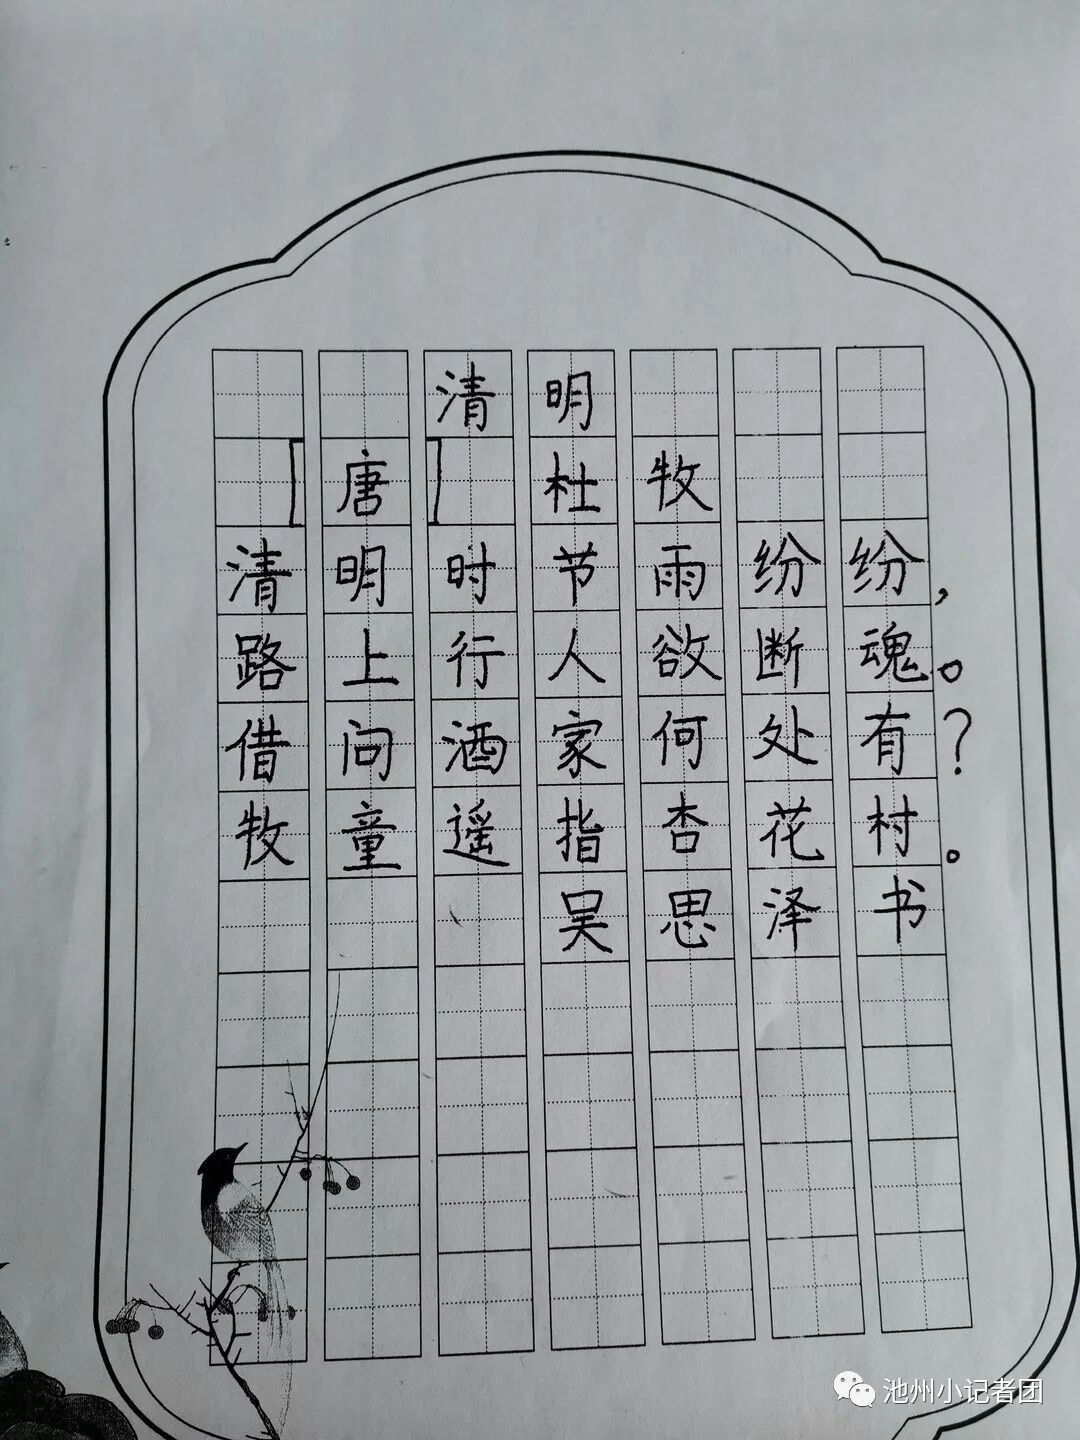 清明
[唐] 杜牧
清明时节雨纷纷，
路上行人欲断魂。
借问酒家何处有？
牧童遥指杏花村。
吴思泽书
池州小记者团